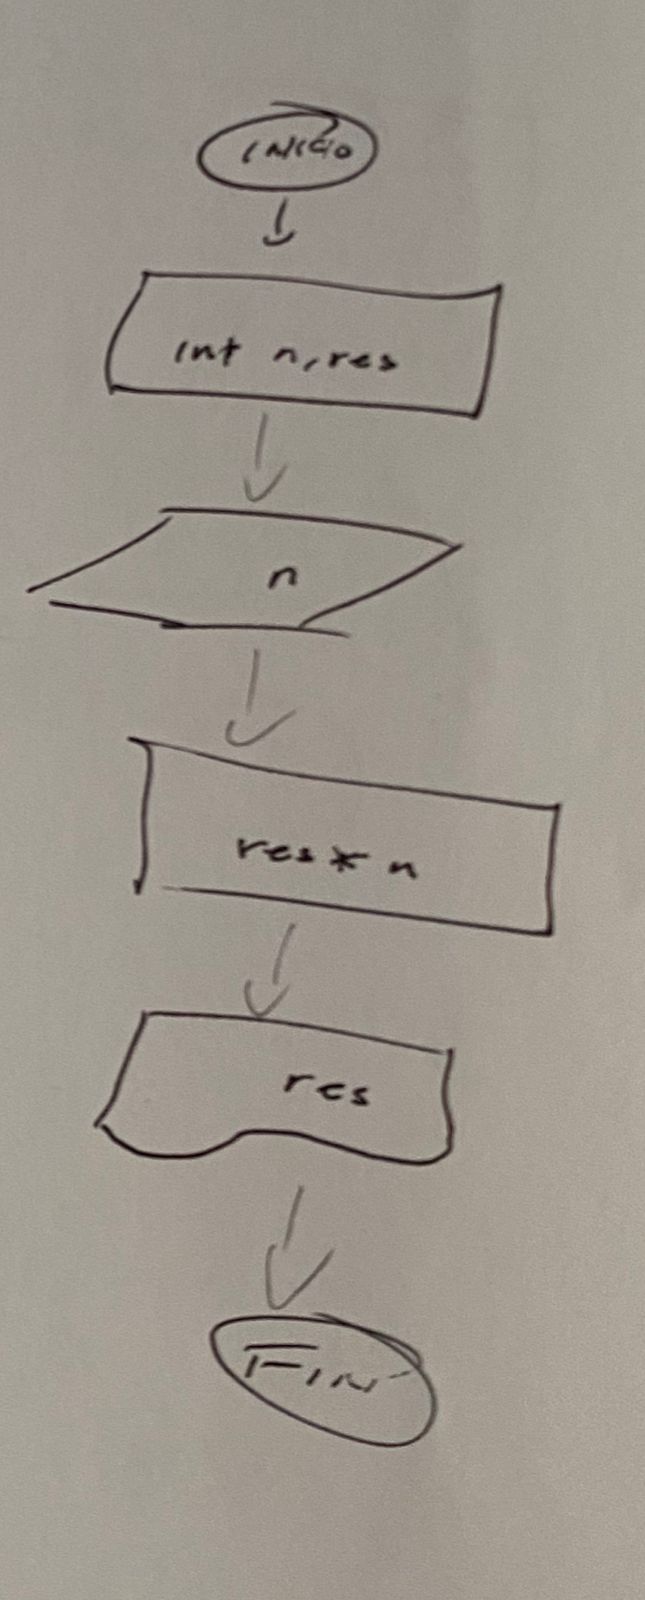 INICIO
int n, res
n
res * n
res
FIN